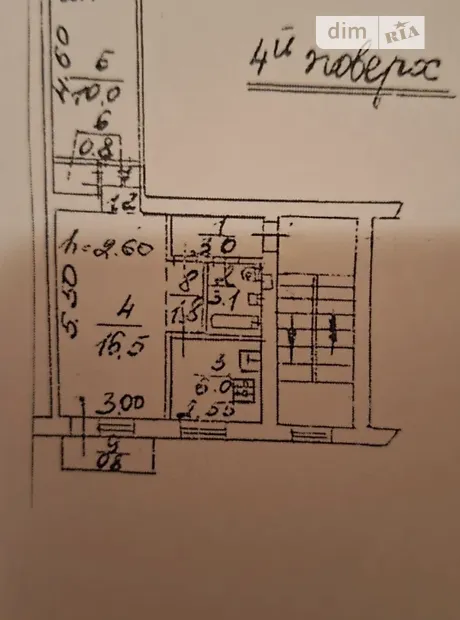 dim RIA
4й поверх
4.60
5
10.0
6
0.8
7
1.2
h=2.60
1
3.0
5.50
4
16.5
8
1.5
2
3.1
3
6.0
3.00
2.55
9
0.8